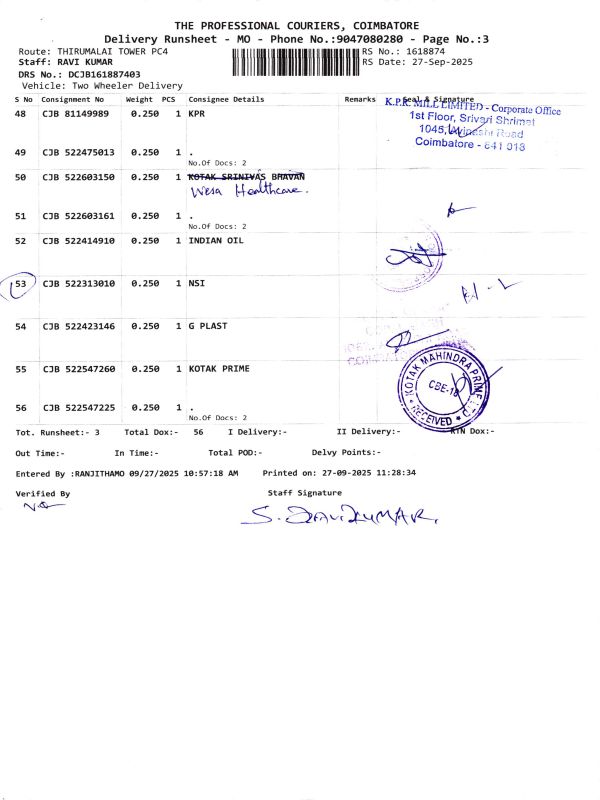 THE PROFESSIONAL COURIERS, COIMBATORE
Delivery Runsheet - MO - Phone No.:9047080280 - Page No.:3
Route: THIRUMALAI TOWER PC4 RS No.: 1618874
Staff: RAVI KUMAR RS Date: 27-Sep-2025
DRS No.: DCJB161887403
Vehicle: Two Wheeler Delivery
S No Consignment No Weight PCS Consignee Details Remarks Seal & Signature
K.P.R. MILL LIMITED - Corporate Office
48 CJB 81149989 0.250 1 KPR
1st Floor, Srivari Shrimat
1045, Avinashi Road
Coimbatore - 641 018
49 CJB 522475013 0.250 1 .
No.Of Docs: 2
50 CJB 522603150 0.250 1 KOTAK SRINIVAS BHAVAN
Wesa Healthcare.
51 CJB 522603161 0.250 1 .
No.Of Docs: 2
52 CJB 522414910 0.250 1 INDIAN OIL
53 CJB 522313010 0.250 1 NSI
54 CJB 522423146 0.250 1 G PLAST
55 CJB 522547260 0.250 1 KOTAK PRIME
KOTAK MAHINDRA PRIME
CBE-18
RECEIVED
56 CJB 522547225 0.250 1 .
No.Of Docs: 2
Tot. Runsheet:- 3 Total Dox:- 56 I Delivery:- II Delivery:- RTN Dox:-
Out Time:- In Time:- Total POD:- Delvy Points:-
Entered By :RANJITHAMO 09/27/2025 10:57:18 AM Printed on: 27-09-2025 11:28:34
Verified By Staff Signature
S. RAVIKUMAR.